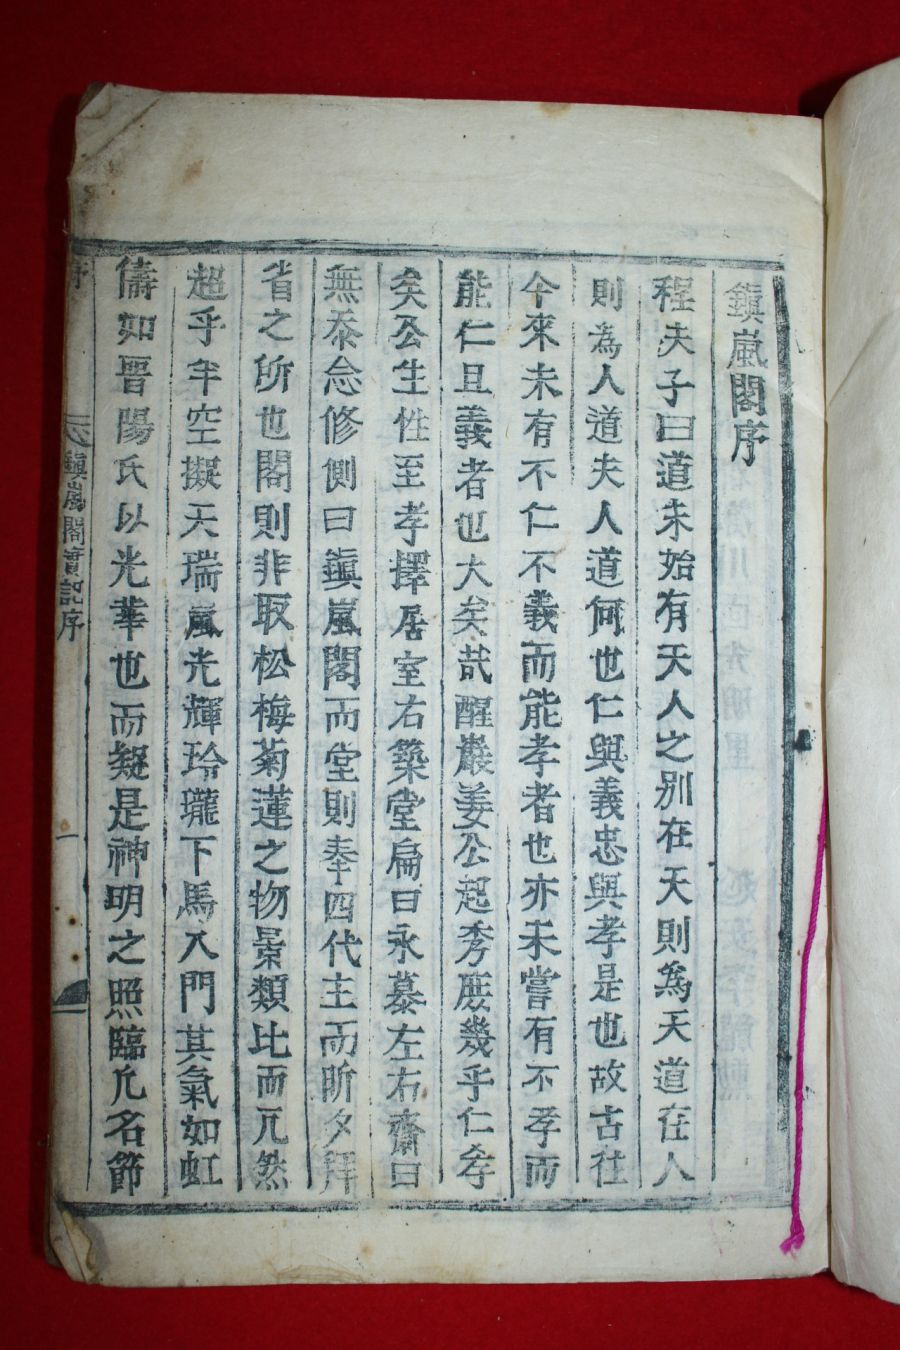 鎭嵐閣序
程夫子曰道未始有天人之別在天則爲天道在人
則為人道夫人道何也仁與義忠與孝是也故古往
今來未有不仁不義而能孝者也亦未嘗有不孝而
能仁且義者也大矣哉醒巖姜公起秀庶幾乎仁孝
矣公生性至孝擇居室右築堂扁曰永慕左右齋曰
無忝念修側曰鎭嵐閣而堂則奉四代主而昕夕拜
省之所也閣則非取松梅菊蓮之物景類比而兀然
超乎半空擬天瑞嵐光輝玲瓏下馬入門其氣如虹
儔如晋陽氏以光華也而疑是神明之照臨凢名節
鎭嵐閣實記序
一